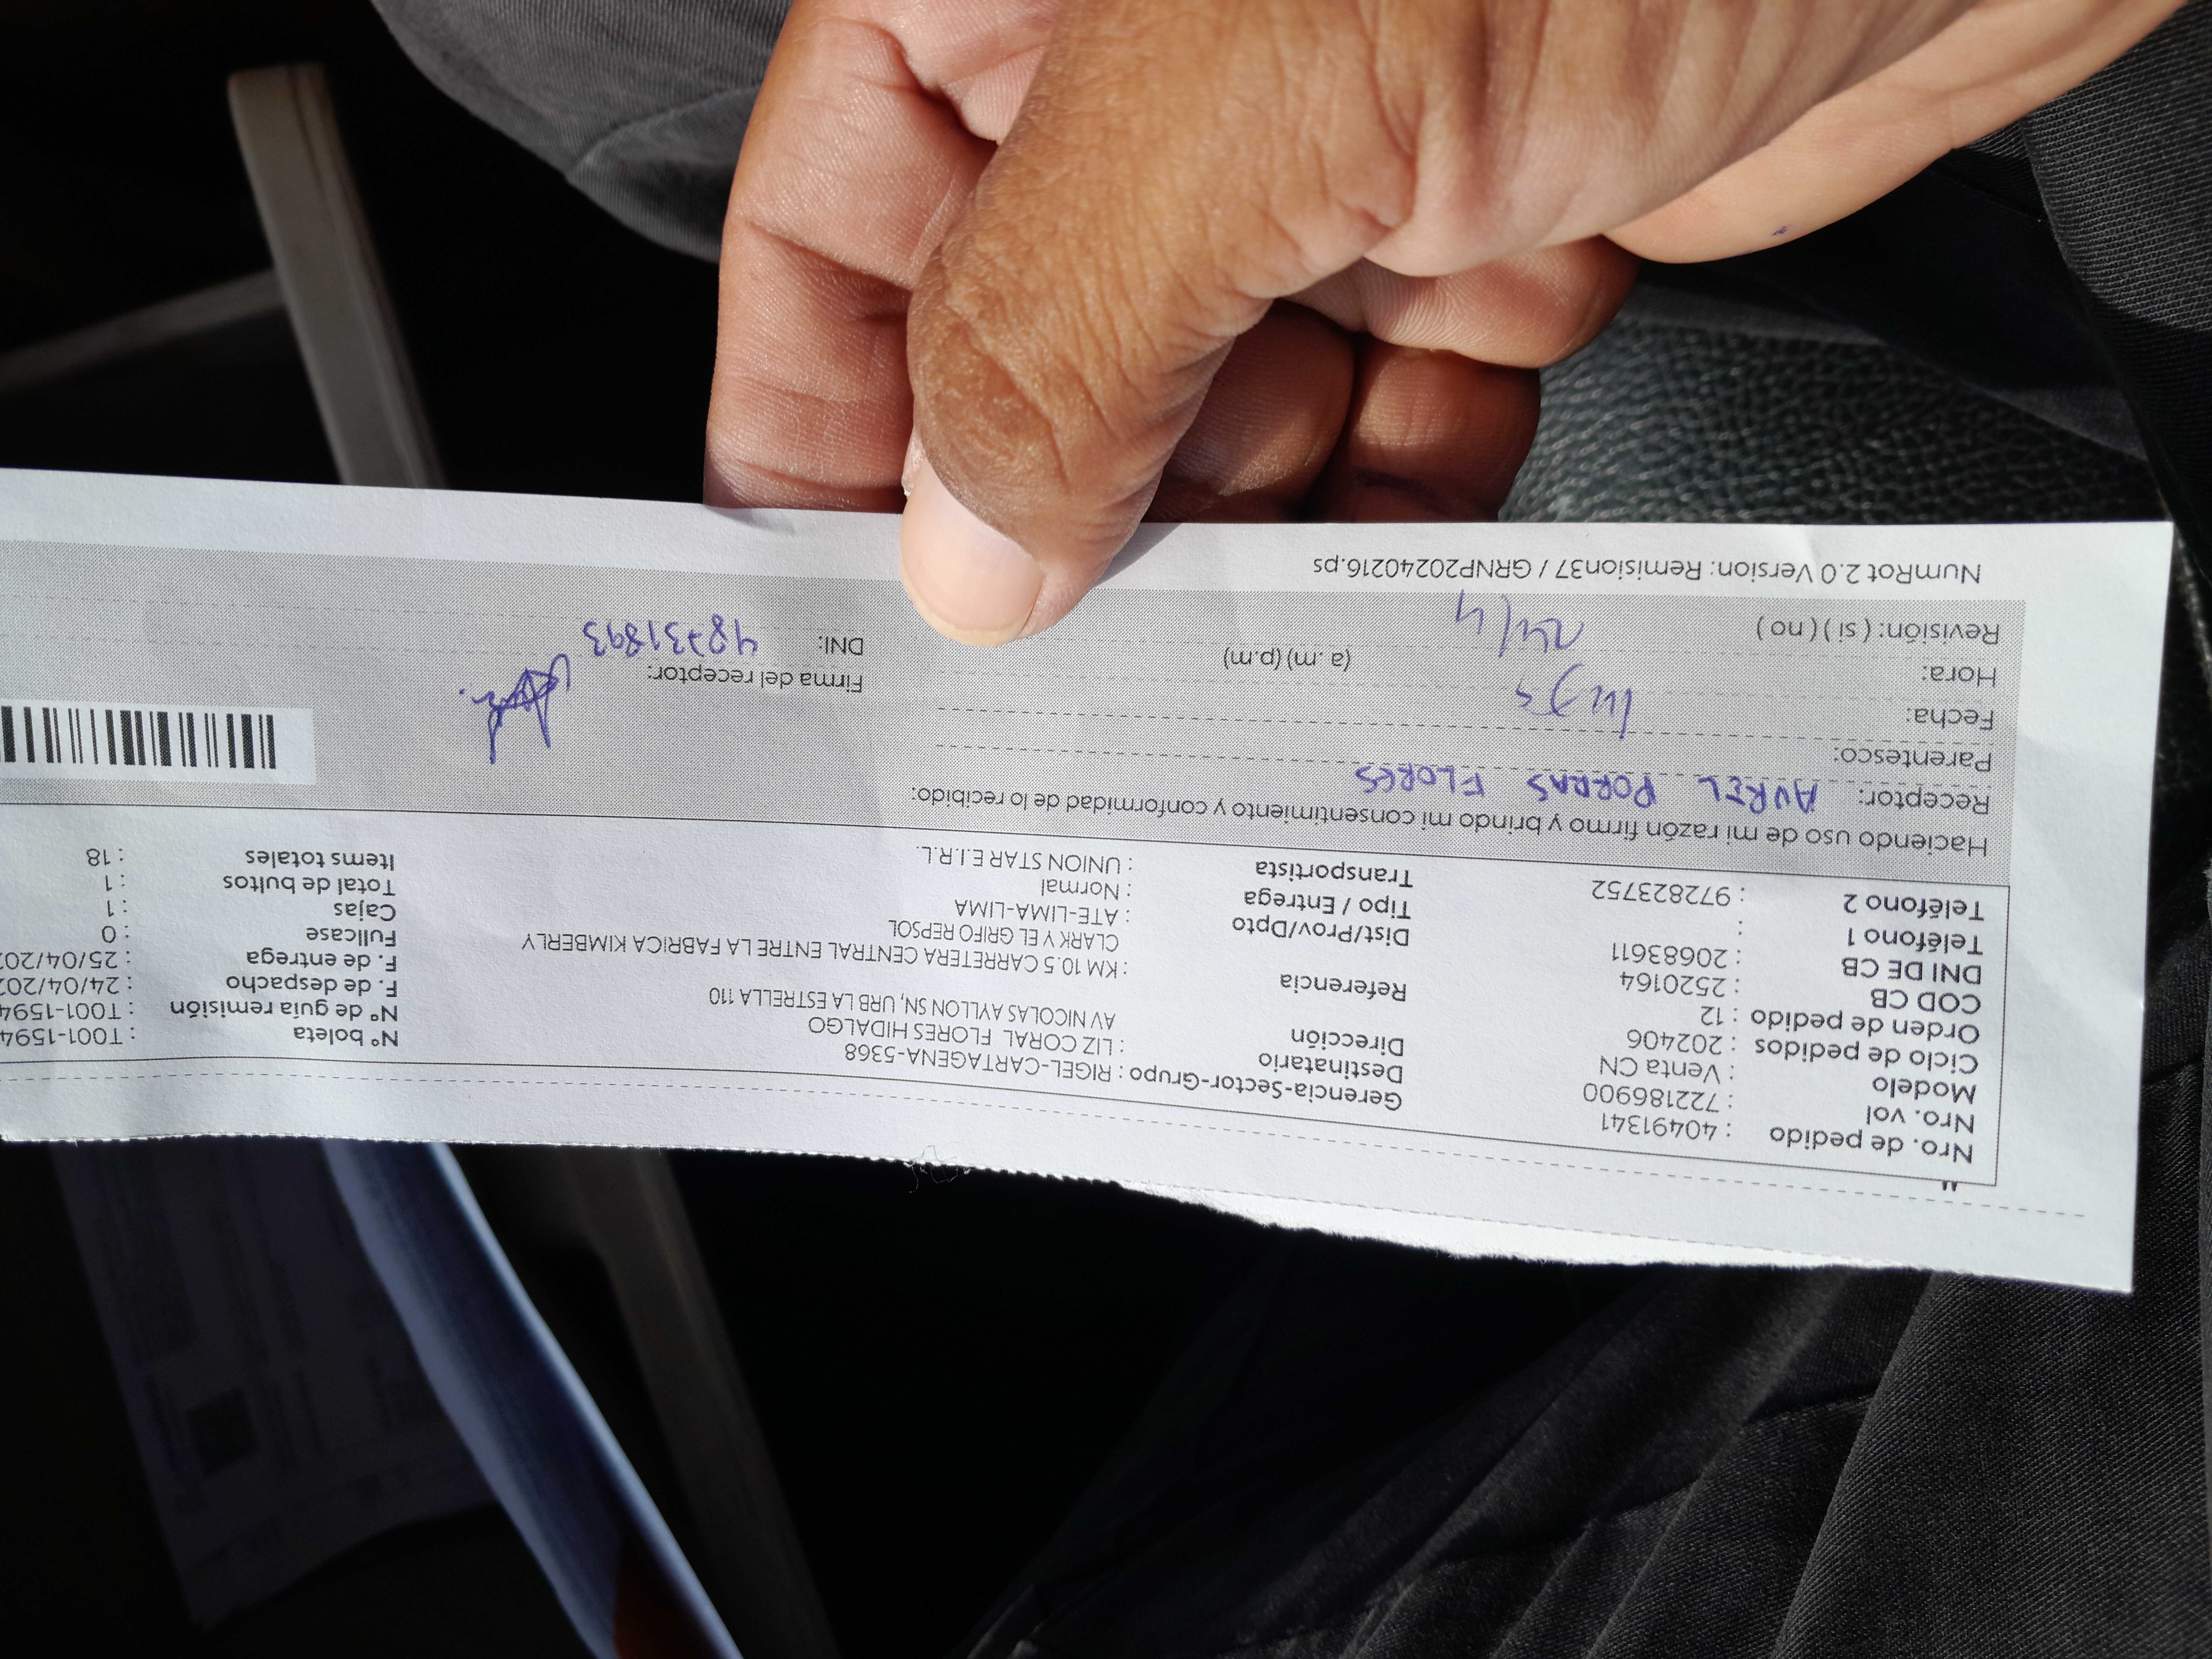 Nro. de pedido : 40491341
Nro. vol : 722186900
Modelo : Venta CN
Ciclo de pedidos : 202406
Orden de pedido : 12
COD CB : 2520164
DNI DE CB : 20683611
Teléfono 1 :
Teléfono 2 : 972823752
Gerencia-Sector-Grupo : RIGEL-CARTAGENA-5368
Destinatario : LIZ CORAL FLORES HIDALGO
Dirección AV NICOLAS AYLLON SN, URB LA ESTRELLA 110
Referencia : KM 10.5 CARRETERA CENTRAL ENTRE LA FABRICA KIMBERLY
CLARK Y EL GRIFO REPSOL
Dist/Prov/Dpto : ATE-LIMA-LIMA
Tipo / Entrega : Normal
Transportista : UNION STAR E.I.R.L.
N° boleta : T001-1594
N° de guia remisión : T001-1594
F. de despacho : 24/04/202
F. de entrega : 25/04/202
Fullcase : 0
Cajas : 1
Total de bultos : 1
Items totales : 18
Haciendo uso de mi razón firmo y brindo mi consentimiento y conformidad de lo recibido:
Receptor: AUREL PORRAS FLORES
Parentesco:
Fecha:
Hora: (a.m) (p.m)
Revisión: ( si ) ( no ) 24/4
Firma del receptor:
DNI: 48731893
NumRot 2.0 Version: Remision37 / GRNP20240216.ps